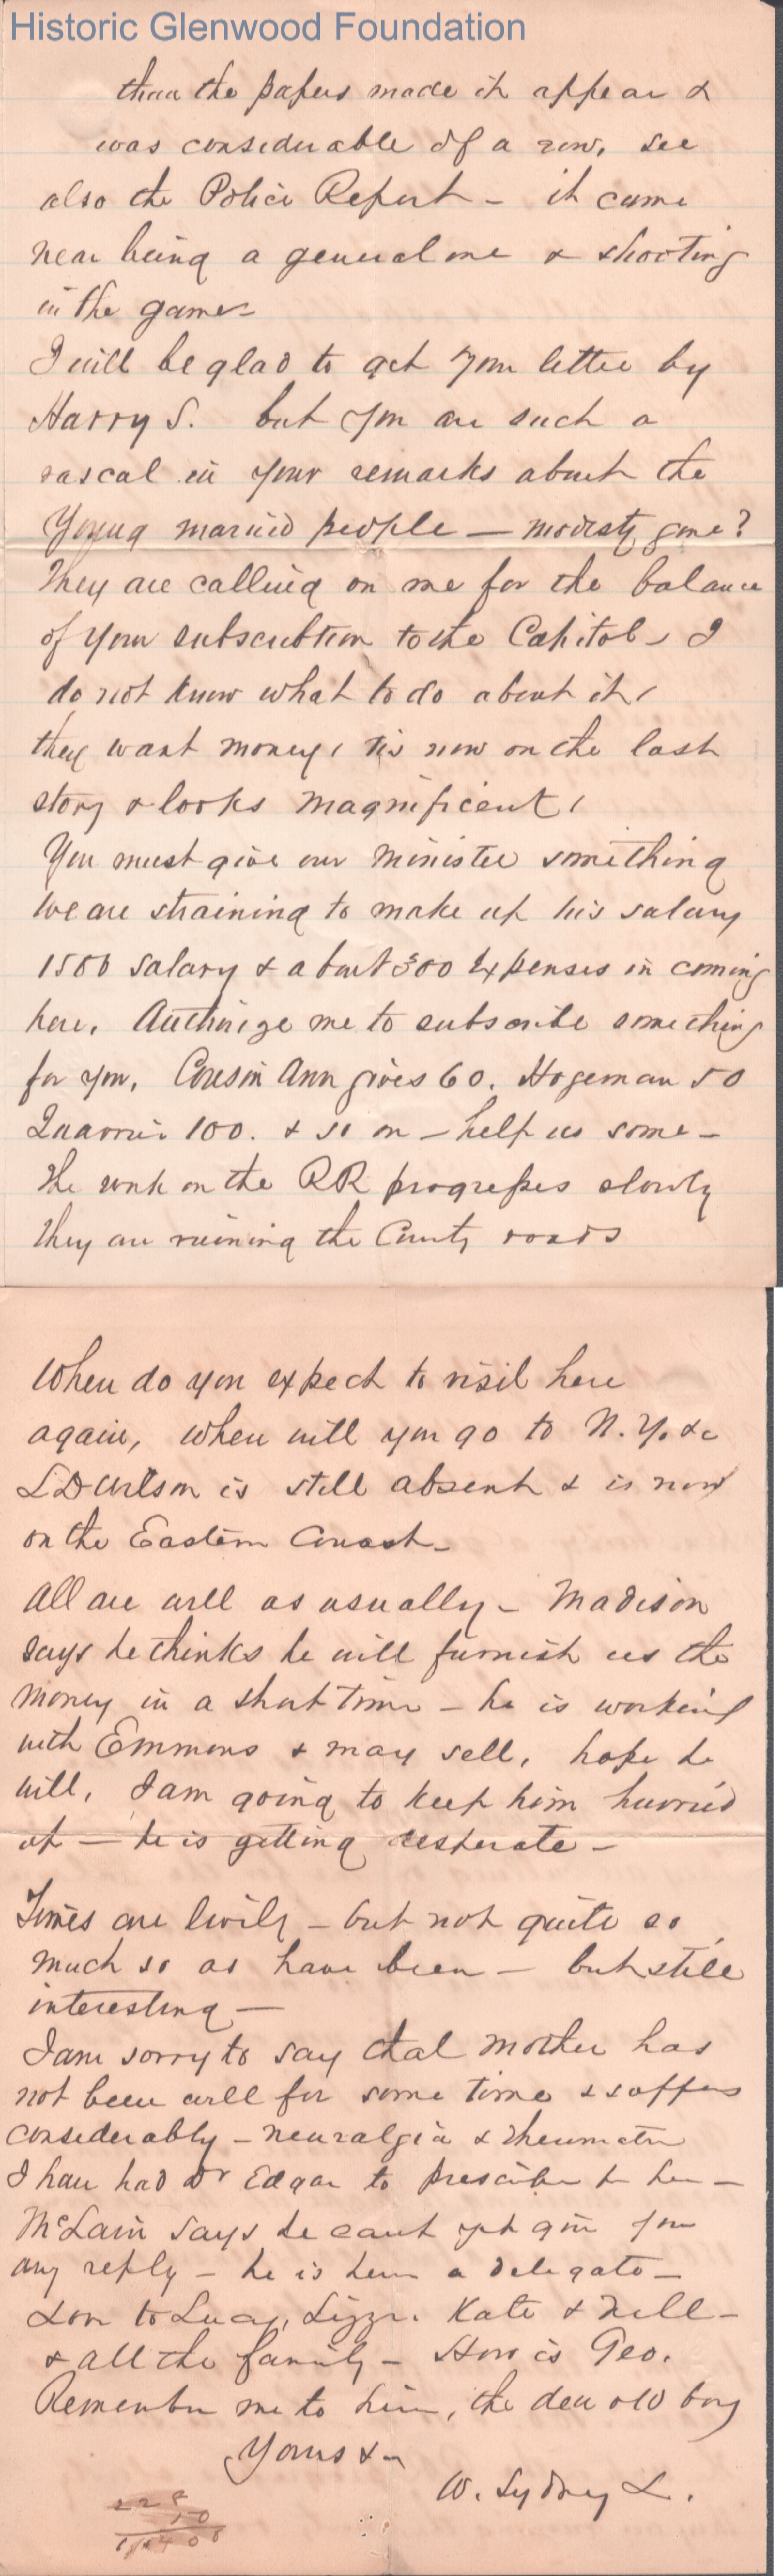 Historic Glenwood Foundation
than the papers made it appear &
was considerable of a row, see
also the Police Report - it came
near being a general one & shooting
in the game -
I will be glad to get your letter by
Harry S. but you are such a
rascal in your remarks about the
Young married people — modesty gone?
They are calling on me for the balance
of your subscribtion to the Capitol - I
do not know what to do about it,
they want money, tis now on the last
story & looks magnificent,
You must give our minister something
We are straining to make up his salary
1500 salary & about 300 Expenses in coming
here. Authorize me to subscribe something
for you, Cousin Ann gives 60. Hogeman 50
Quarrier 100. & so on - help us some -
The work on the RR progresses slowly
They are ruining the County roads
When do you expect to visit here
again, when will you go to N.Y. &c
is still absent & is now
on the Eastern
All are well as usually - Madison
says he thinks he will furnish us the
money in a short time - he is working
with Emmons & may sell, hope he
will, I am going to keep him hurried
up — he is getting desperate -
Times are lively - but not quite so
much so as have been - but still
interesting —
I am sorry to say that mother has
not been well for some time & suffers
considerably - neuralgia &
I have had Dr Edgar to prescribe for her -
McLain says he cant yet give you
any reply - he is here a delegate -
Love to Lucy, Lizzie Kate & Nell -
& all the family - How is Geo.
Remember me to him, the dear old boy
Yours &c
W. Sydney L.
228
50
11400